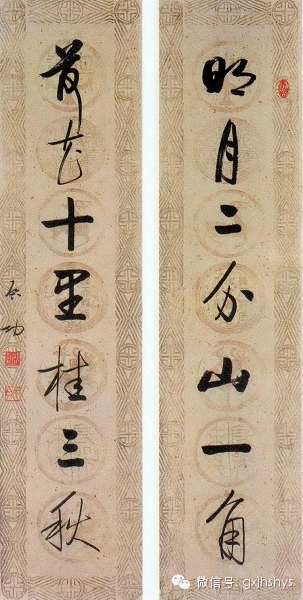 明月二分山一角
荷花十里桂三秋
启功
微信号: gxjhshys